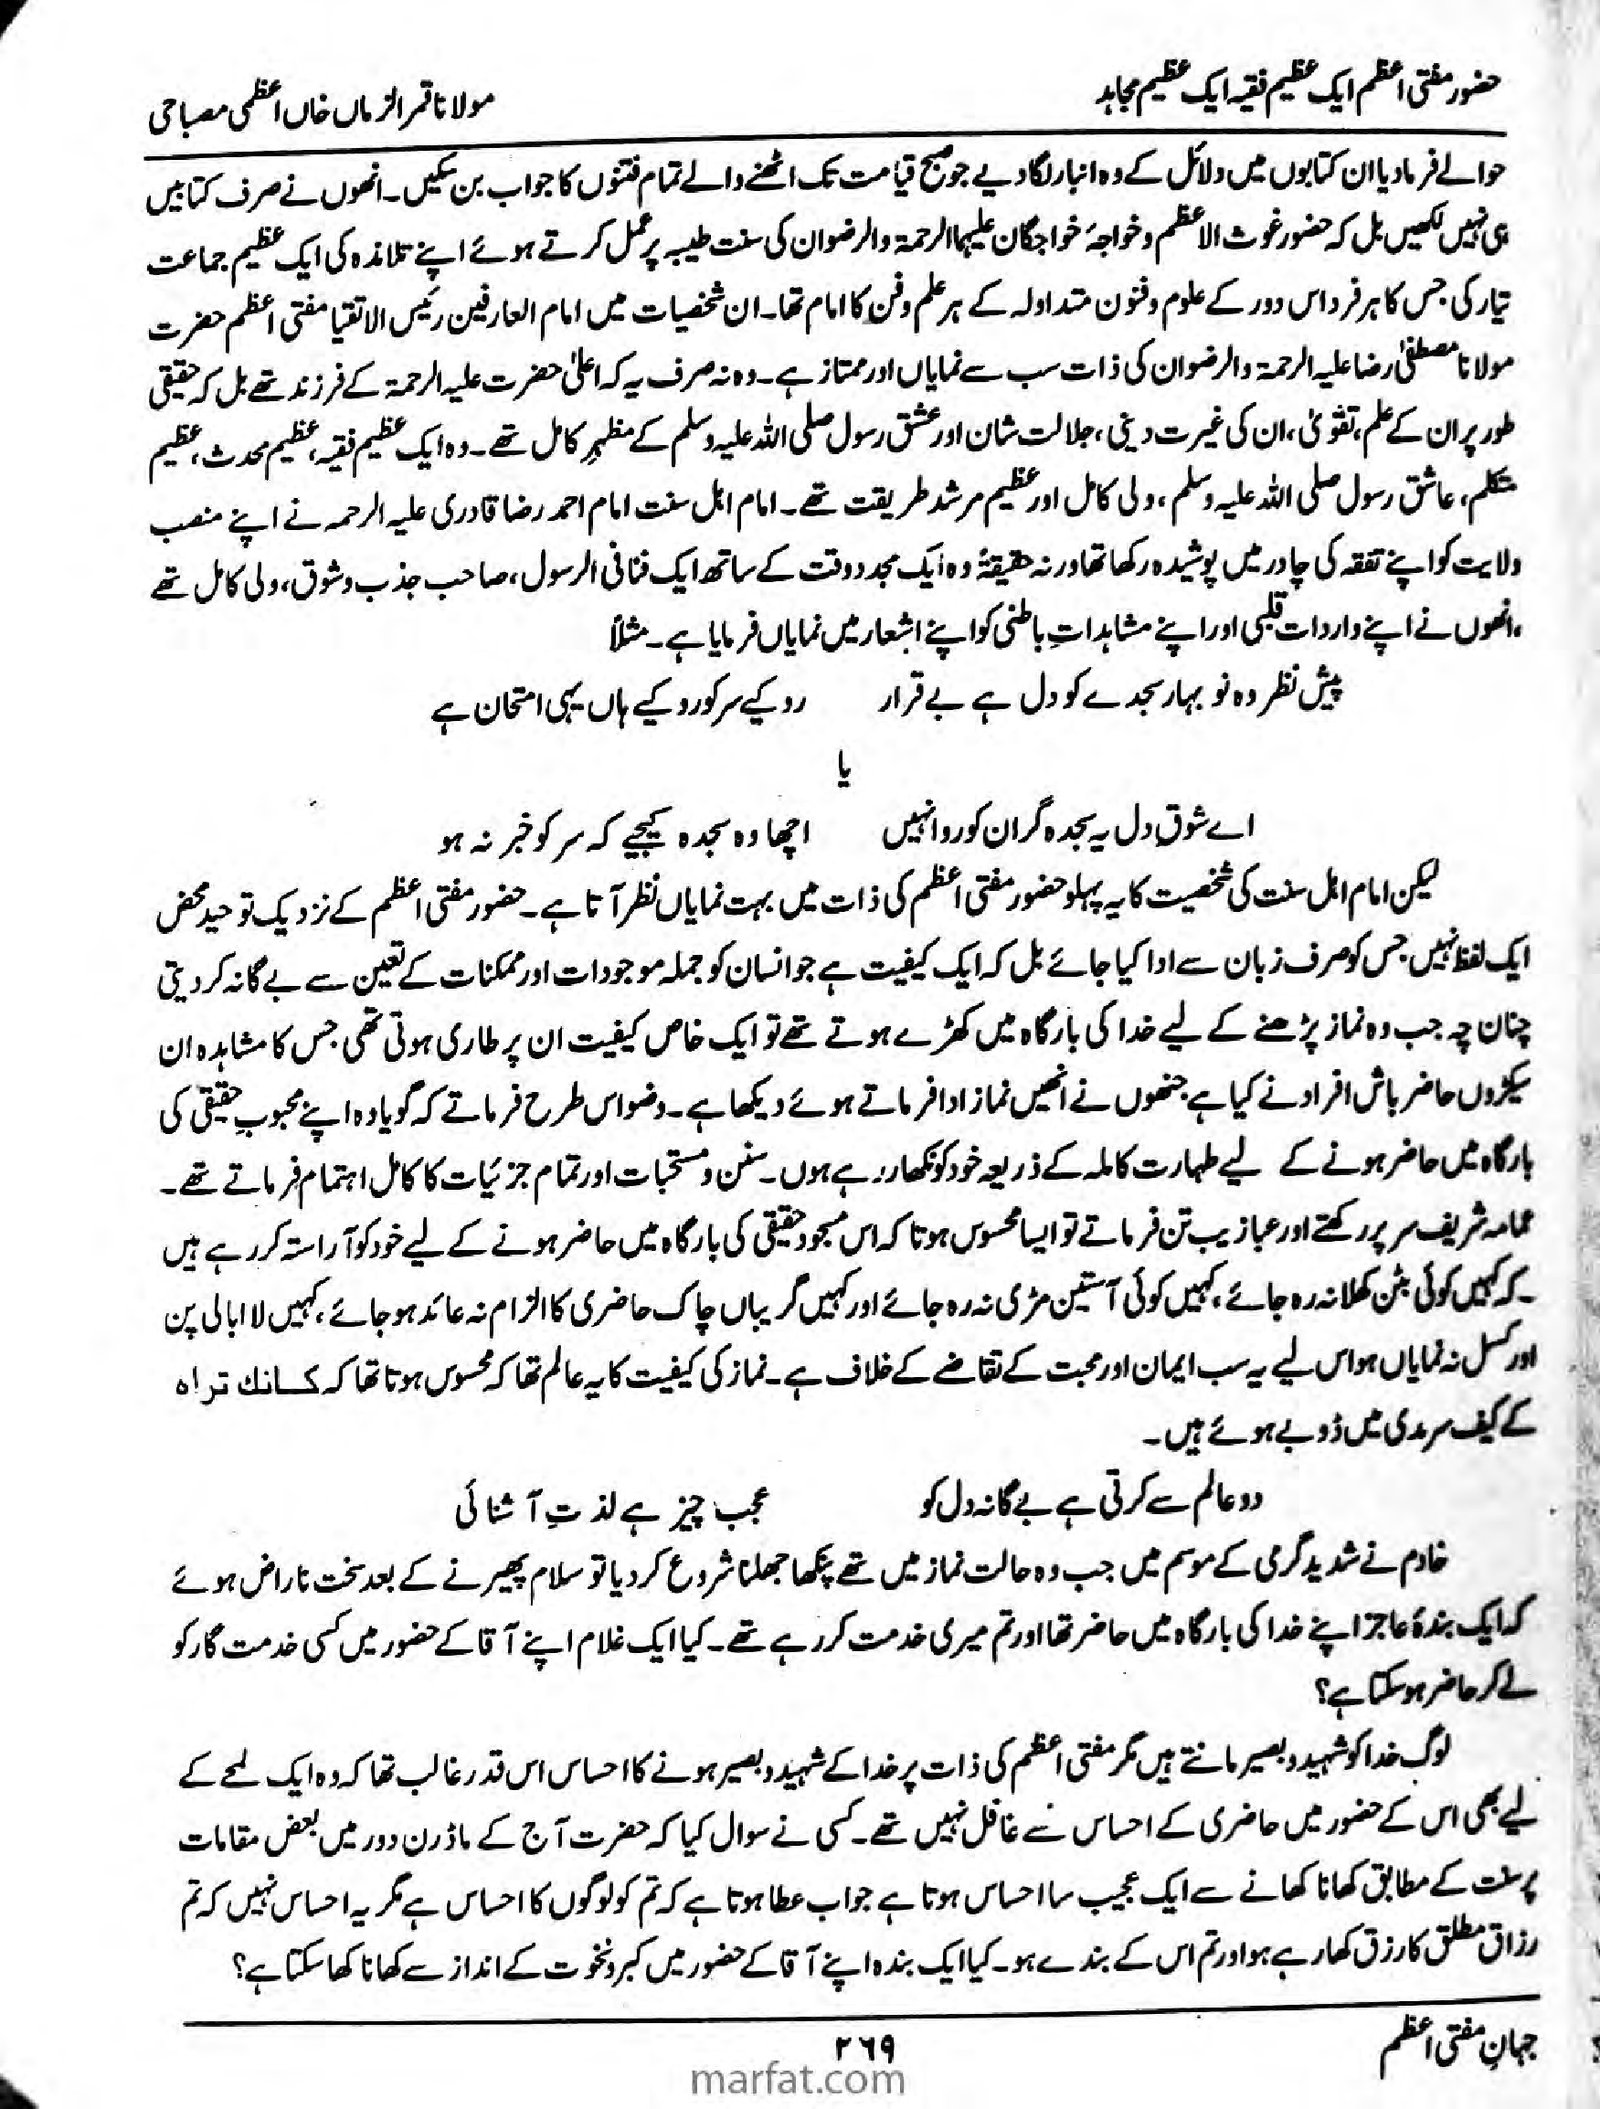 حضور مفتی اعظم ایک عظیم فقیہ ایک عظیم مجاہد
مولانا قمر الزماں خاں اعظمی مصباحی
حوالے فرمادیا ان کتابوں میں دلائل کے وہ انبار لگا دیے جو صبح قیامت تک اٹھنے والے تمام فتنوں کا جواب بن سکیں۔ انھوں نے صرف کتابیں
ہی نہیں لکھیں بل کہ حضور غوث الاعظم و خواجۂ خواجگان علیہما الرحمۃ والرضوان کی سنت طیبہ پر عمل کرتے ہوئے اپنے تلامذہ کی ایک عظیم جماعت
تیار کی جس کا ہر فرد اس دور کے علوم و فنون متداولہ کے ہر علم و فن کا امام تھا۔ ان شخصیات میں امام العارفین رئیس الاتقیا مفتی اعظم حضرت
مولانا مصطفیٰ رضا علیہ الرحمۃ والرضوان کی ذات سب سے نمایاں اور ممتاز ہے۔ وہ نہ صرف یہ کہ اعلیٰ حضرت علیہ الرحمۃ کے فرزند تھے بل کہ حقیقی
طور پر ان کے علم، تقویٰ، ان کی غیرت دینی، جلالت شان اور عشق رسول صلی اللہ علیہ وسلم کے مظہرِ کامل تھے۔ وہ ایک عظیم فقیہ، عظیم محدث، عظیم
متکلم، عاشق رسول صلی اللہ علیہ وسلم، ولی کامل اور عظیم مرشد طریقت تھے۔ امام اہل سنت امام احمد رضا قادری علیہ الرحمہ نے اپنے منصب
ولایت کو اپنے تفقہ کی چادر میں پوشیدہ رکھا تھا ورنہ حقیقۃً وہ ایک مجدد وقت کے ساتھ ایک فنا فی الرسول، صاحب جذب و شوق، ولی کامل تھے
،انھوں نے اپنے واردات قلبی اور اپنے مشاہداتِ باطنی کو اپنے اشعار میں نمایاں فرمایا ہے۔ مثلاً
پیش نظر وہ نو بہار سجدے کو دل ہے بے قرار روکیے سر کو روکیے ہاں یہی امتحان ہے
یا
اے شوقِ دل یہ سجدہ گر ان کو روا نہیں اچھا وہ سجدہ کیجیے کہ سر کو خبر نہ ہو
لیکن امام اہل سنت کی شخصیت کا یہ پہلو حضور مفتی اعظم کی ذات میں بہت نمایاں نظر آتا ہے۔ حضور مفتی اعظم کے نزدیک توحید محض
ایک لفظ نہیں جس کو صرف زبان سے ادا کیا جائے بل کہ ایک کیفیت ہے جو انسان کو جملہ موجودات اور ممکنات کے تعین سے بے گانہ کر دیتی
چناں چہ جب وہ نماز پڑھنے کے لیے خدا کی بارگاہ میں کھڑے ہوتے تھے تو ایک خاص کیفیت ان پر طاری ہوتی تھی جس کا مشاہدہ ان
سیکڑوں حاضر باش افراد نے کیا ہے جنھوں نے انھیں نماز ادا فرماتے ہوئے دیکھا ہے۔ وضو اس طرح فرماتے کہ گویا وہ اپنے محبوبِ حقیقی کی
بارگاہ میں حاضر ہونے کے لیے طہارت کاملہ کے ذریعہ خود کو نکھار رہے ہوں۔ سنن و مستحبات اور تمام جزئیات کا کامل اہتمام فرماتے تھے۔
عمامہ شریف سر پر رکھتے اور عبا زیب تن فرماتے تو ایسا محسوس ہوتا کہ اس مسجود حقیقی کی بارگاہ میں حاضر ہونے کے لیے خود کو آراستہ کر رہے ہیں
۔ کہ کہیں کوئی بٹن کھلا نہ رہ جائے، کہیں کوئی آستین مڑی نہ رہ جائے اور کہیں گریباں چاک حاضری کا الزام نہ عائد ہو جائے، کہیں لا ابالی پن
اور کسل نہ نمایاں ہو اس لیے یہ سب ایمان اور محبت کے تقاضے کے خلاف ہے۔ نماز کی کیفیت کا یہ عالم تھا کہ محسوس ہوتا تھا کہ کانك تراه
کے کیف سرمدی میں ڈوبے ہوئے ہیں۔
دو عالم سے کرتی ہے بے گانہ دل کو عجب چیز ہے لذتِ آشنائی
خادم نے شدید گرمی کے موسم میں جب وہ حالت نماز میں تھے پنکھا جھلنا شروع کر دیا تو سلام پھیرنے کے بعد سخت ناراض ہوئے
کہ ایک بندۂ عاجز اپنے خدا کی بارگاہ میں حاضر تھا اور تم میری خدمت کر رہے تھے۔ کیا ایک غلام اپنے آقا کے حضور میں کسی خدمت گار کو
لے کر حاضر ہو سکتا ہے؟
لوگ خدا کو شہید و بصیر مانتے ہیں مگر مفتی اعظم کی ذات پر خدا کے شہید و بصیر ہونے کا احساس اس قدر غالب تھا کہ وہ ایک لمحے کے
لیے بھی اس کے حضور میں حاضری کے احساس سے غافل نہیں تھے۔ کسی نے سوال کیا کہ حضرت آج کے ماڈرن دور میں بعض مقامات
پر سنت کے مطابق کھانا کھانے سے ایک عجیب سا احساس ہوتا ہے جواب عطا ہوتا ہے کہ تم کو لوگوں کا احساس ہے مگر یہ احساس نہیں کہ تم
رزاق مطلق کا رزق کھا رہے ہو اور تم اس کے بندے ہو۔ کیا ایک بندہ اپنے آقا کے حضور میں کبر و نخوت کے انداز سے کھانا کھا سکتا ہے؟
جہانِ مفتی اعظم
۲۶۹
marfat.com